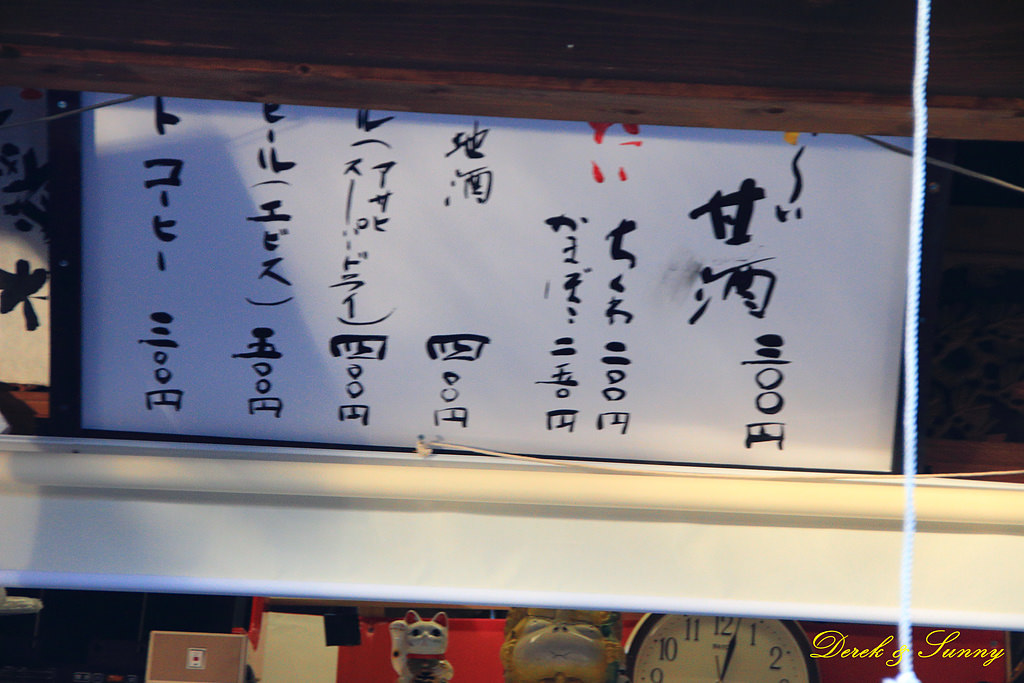 甘酒 三〇〇円
ちくわ 二〇〇円
かまぼこ 二五〇円
地酒 四〇〇円
ル(アサヒ
スーパードライ) 四〇〇円
ビール(エビス) 五〇〇円
ト コーヒー 三〇〇円
10 11 12 1 2
Derek & Sunny